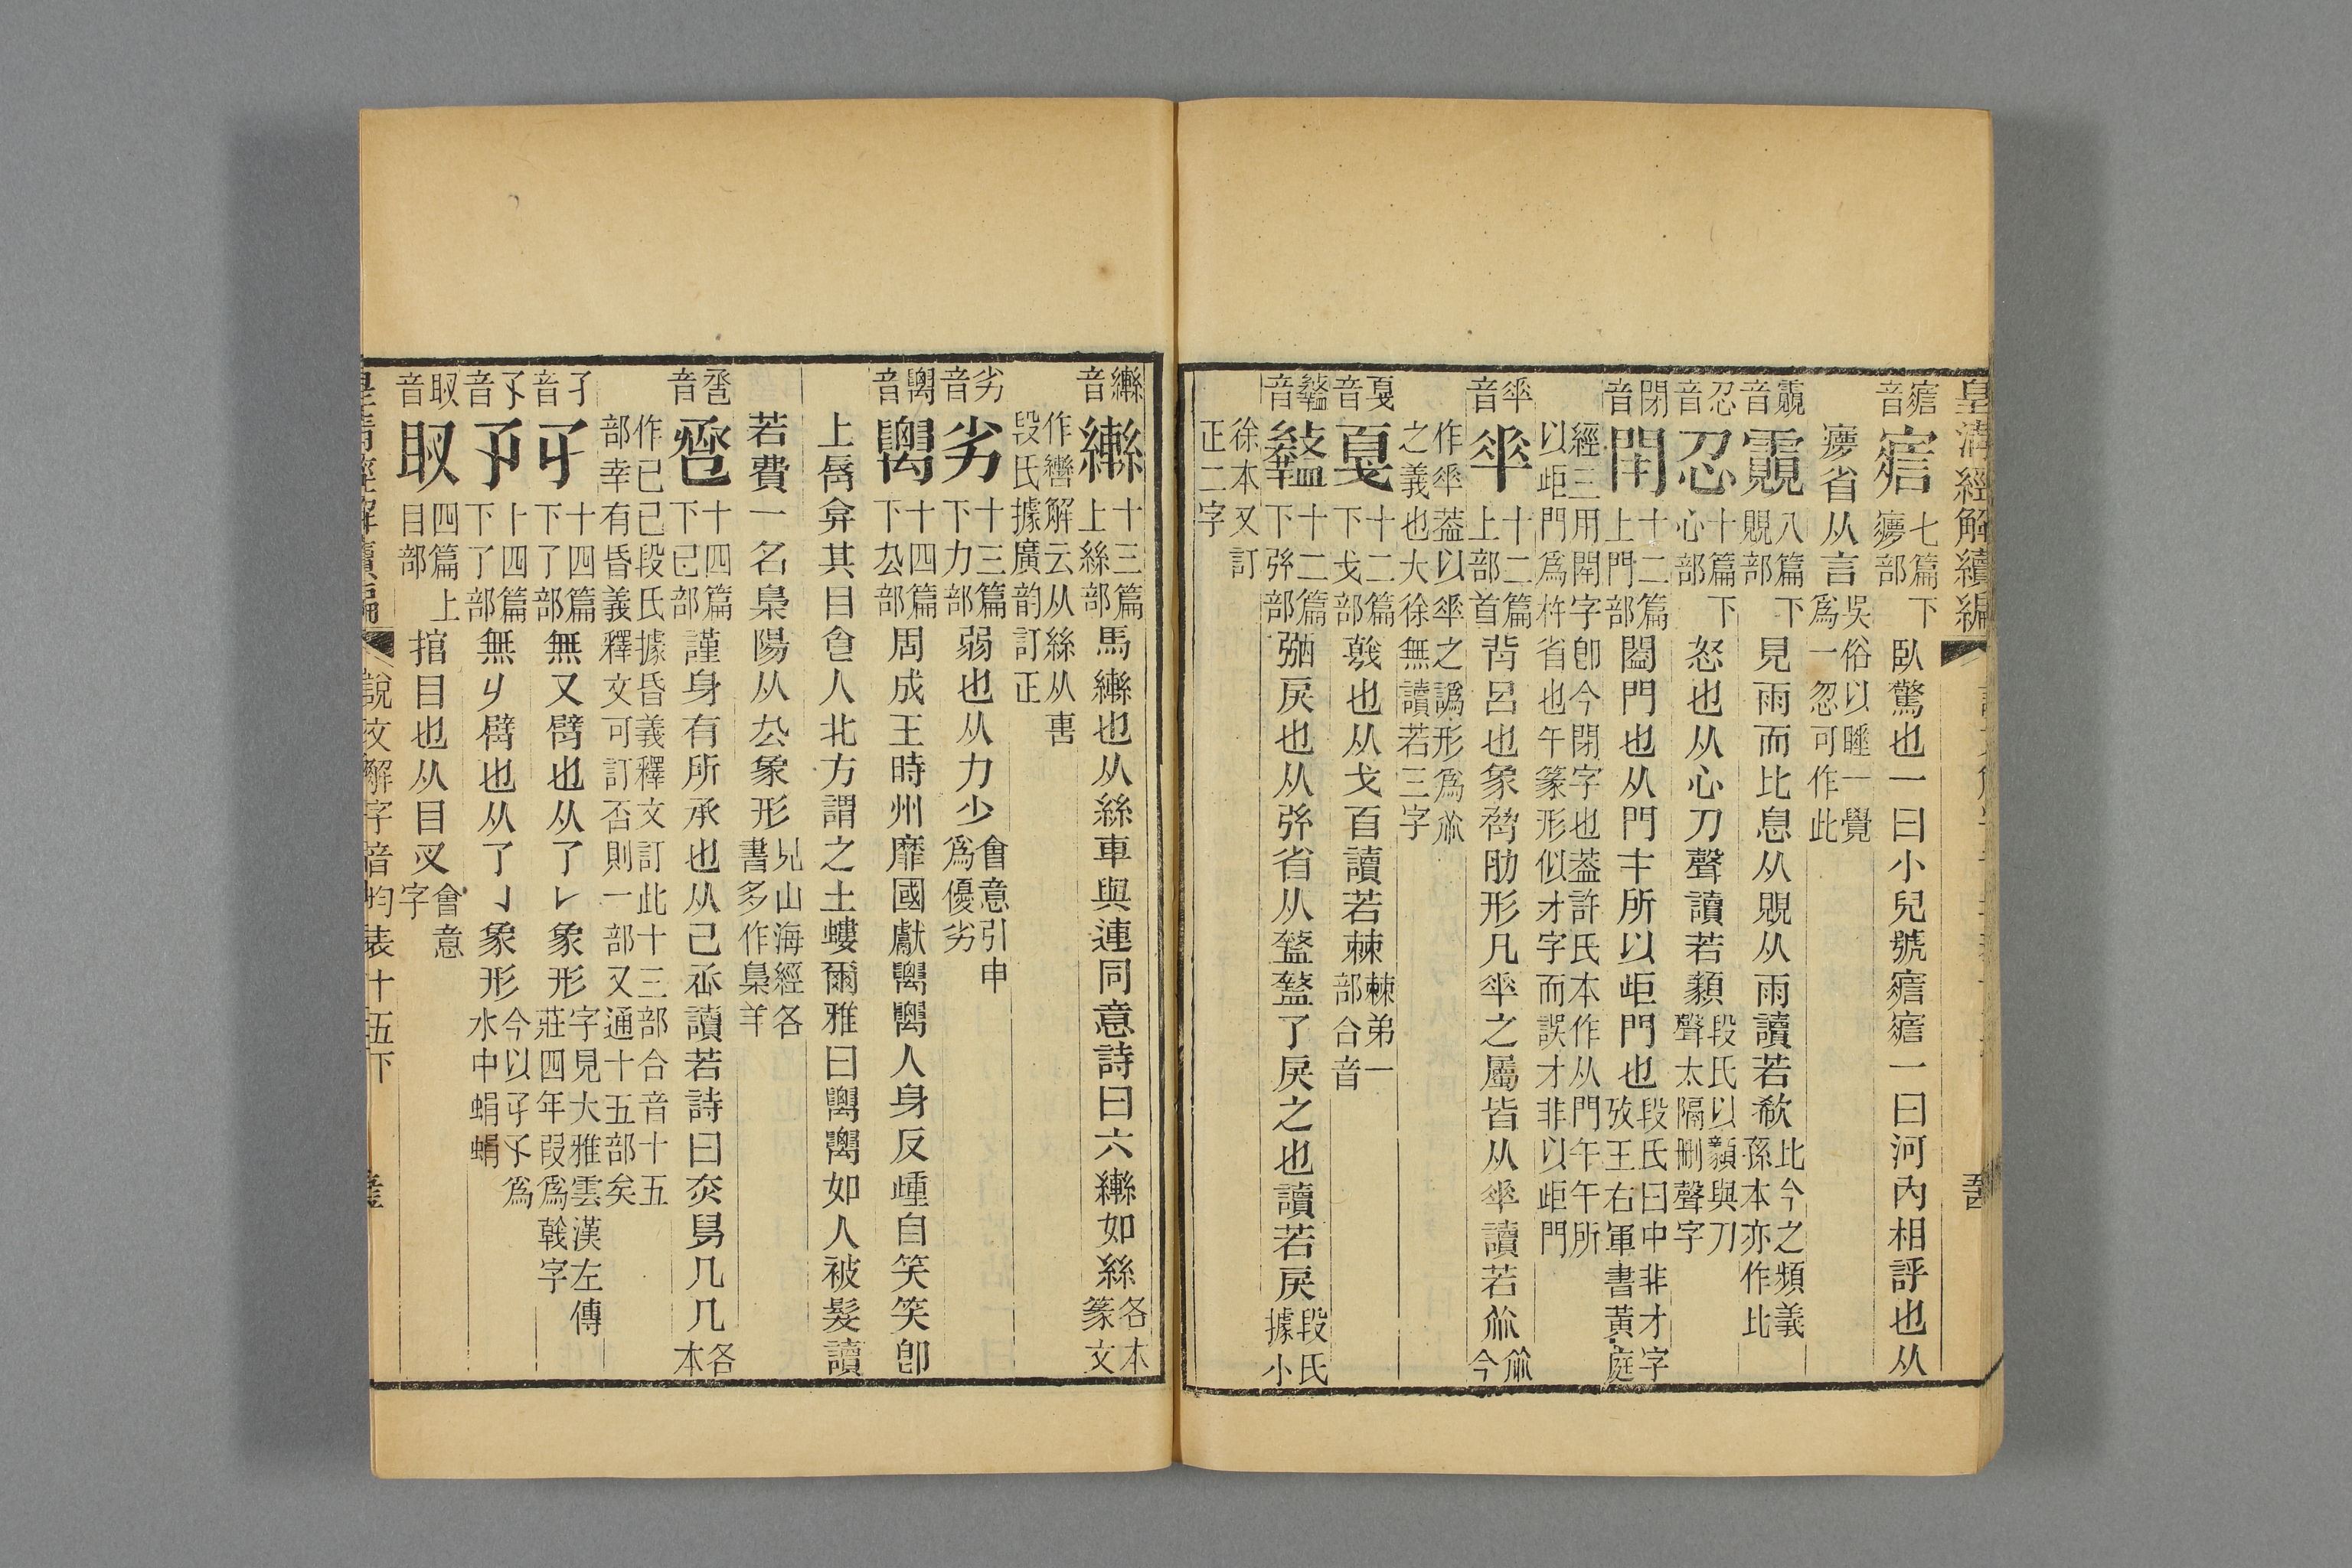 皇清經解續編
㝱音 七篇下㝱部 臥驚也一曰小兒號㝱㝱一曰河內相評也从
㝱省从言 吳俗以睡一覺爲一忽可作此
覞部 八篇下 見雨而比息从覞从雨讀若欷 此今之頻義孫本亦作比
忍音 忍 十篇下心部 怒也从心刀聲讀若顡 段氏以顡與刀聲太隔刪聲字
閉音 閈 十二篇上門部 闔門也从門才所以歫門也 段氏曰中非才字攷王右軍書黃庭
經三用閈字卽今閉字也葢許氏本作从門午午所以歫門爲杵省也午篆形似才字而誤才非以歫門
𠦬音 𠦬 十二篇上部首 背呂也象脅肋形凡𠦬之屬皆从𠦬讀若𠂢 𠂢今
作𠦬葢以𠦬之譌形爲𠂢之義也大徐無讀若三字
戛音 戛 十二篇下戈部 㦸也从戈百讀若棘 棘弟一部合音
盭音 盭 十二篇下弦部 弼戾也从弦省从盩盩了戾之也讀若戾 段氏據小
徐本又訂正二字
轡音 轡 十三篇上絲部 馬轡也从絲車與連同意詩曰六轡如絲 各本篆文
作轡解云从絲从軎段氏據廣韵訂正
劣音 劣 十三篇下力部 弱也从力少 會意引申爲優劣
𥜿音 𥜿 十四篇下厹部 周成王時州靡國獻𥜿𥜿人身反踵自笑笑卽
上脣弇其目食人北方謂之土螻爾雅曰𥜿𥜿如人被髮讀
若費一名梟陽从厹象形 見山海經各書多作梟羊
巹音 巹 十四篇下已部 謹身有所承也从己丞讀若詩曰赤舄几几 各本
作已已段氏據昏義釋文訂此十三部合音十五部幸有昏義釋文可訂否則一部又通十五部矣
孑音 孑 十四篇下了部 無又臂也从了㇄象形 字見大雅雲漢左傳莊四年叚爲戟字
孓音 孓 十四篇下了部 無𠂇臂也从了亅象形 今以孑孓爲水中蜎蜎
㕞音 䀏 四篇上目部 捾目也从目叉 會意字
皇清經解續編 說文解字音均表十五下